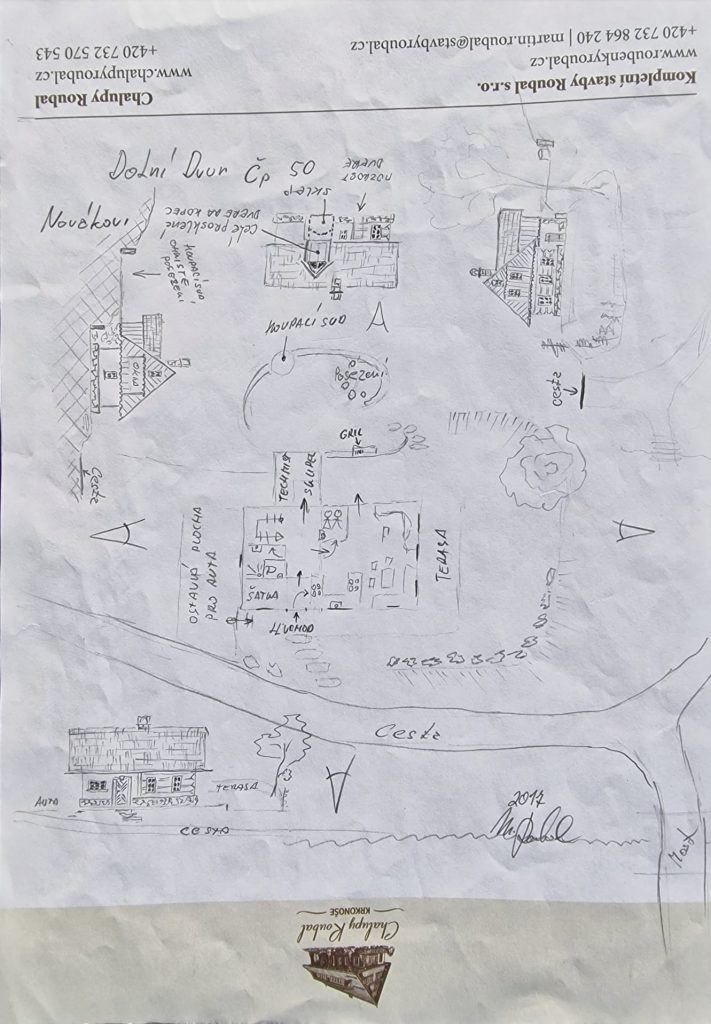 Kompletní stavby Roubal s.r.o.
www.roubenkyroubal.cz
+420 732 864 240 | martin.roubal@stavbyroubal.cz
Chalupy Roubal
www.chalupyroubal.cz
+420 732 570 543
Dolní Dvur Čp 50
SKLEP
MOŽNOST
DVEŘE
CELÉ PROSKLENÉ
DVEŘE NA KOPEC
Novákovi
KOUPACÍ SUD
OHNIŠTĚ
POSEZENÍ
OKNA
KOUPACÍ SUD
POSEZENÍ
Cesta
Cesta
GRIL
TECH MIST
SKLIPEK
OSTAVNÁ PLOCHA
PRO AUTA
ŠATNA
TERASA
Cesta
AUTA
TERASA
CESTA
2017
Most
Chalupy Roubal
KRKONOŠE